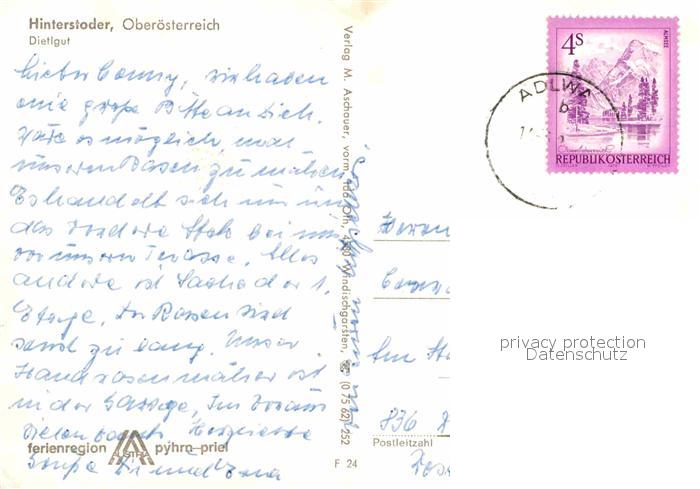 Hinterstoder, Oberösterreich
Dietlgut
Lieber Conny, wir haben
eine große Bitte an Dich.
Wäre es möglich, mal
unseren Rasen zu mähen
Es handelt sich nur um
das vordere Stck bei uns
vor unserer Terasse. Alles
andere ist Sache der 1.
Etage. Der Rasen wird
sonst zu lang. Unser
Handrasenmäher ist
in der Garage. Im Voraus
vielen Dank. Herzliche
Grüße
ferienregion AUSTRIA pyhrn-priel
Verlag M. Aschauer, vorm. Otto Orth, 4580 Windischgarsten, ☎ (0 75 62) 252
F 24
Herrn
Am
836
Postleitzahl
4S
ALMSEE
REPUBLIK ÖSTERREICH
ADLWA
b
privacy protection
Datenschutz